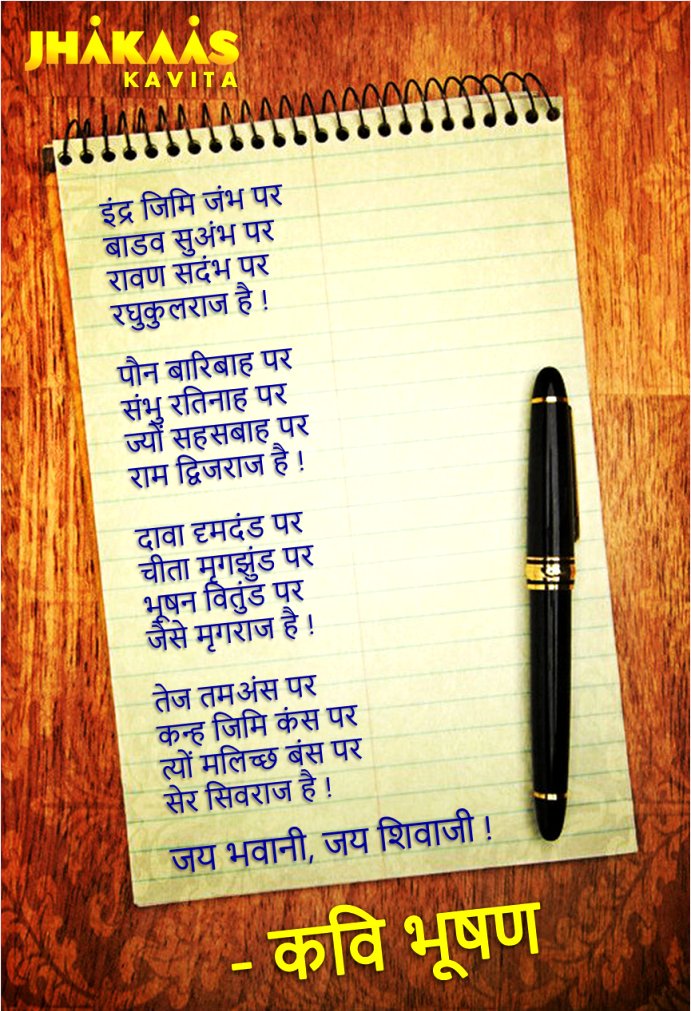 JHAKAAS
KAVITA
इंद्र जिमि जंभ पर
बाडव सुअंभ पर
रावण सदंभ पर
रघुकुलराज है !
पौन बारिबाह पर
संभु रतिनाह पर
ज्यों सहसबाह पर
राम द्विजराज है !
दावा दृमदंड पर
चीता मृगझुंड पर
भूषन वितुंड पर
जैसे मृगराज है !
तेज तमअंस पर
कन्ह जिमि कंस पर
त्यों मलिच्छ बंस पर
सेर सिवराज है !
जय भवानी, जय शिवाजी !
- कवि भूषण